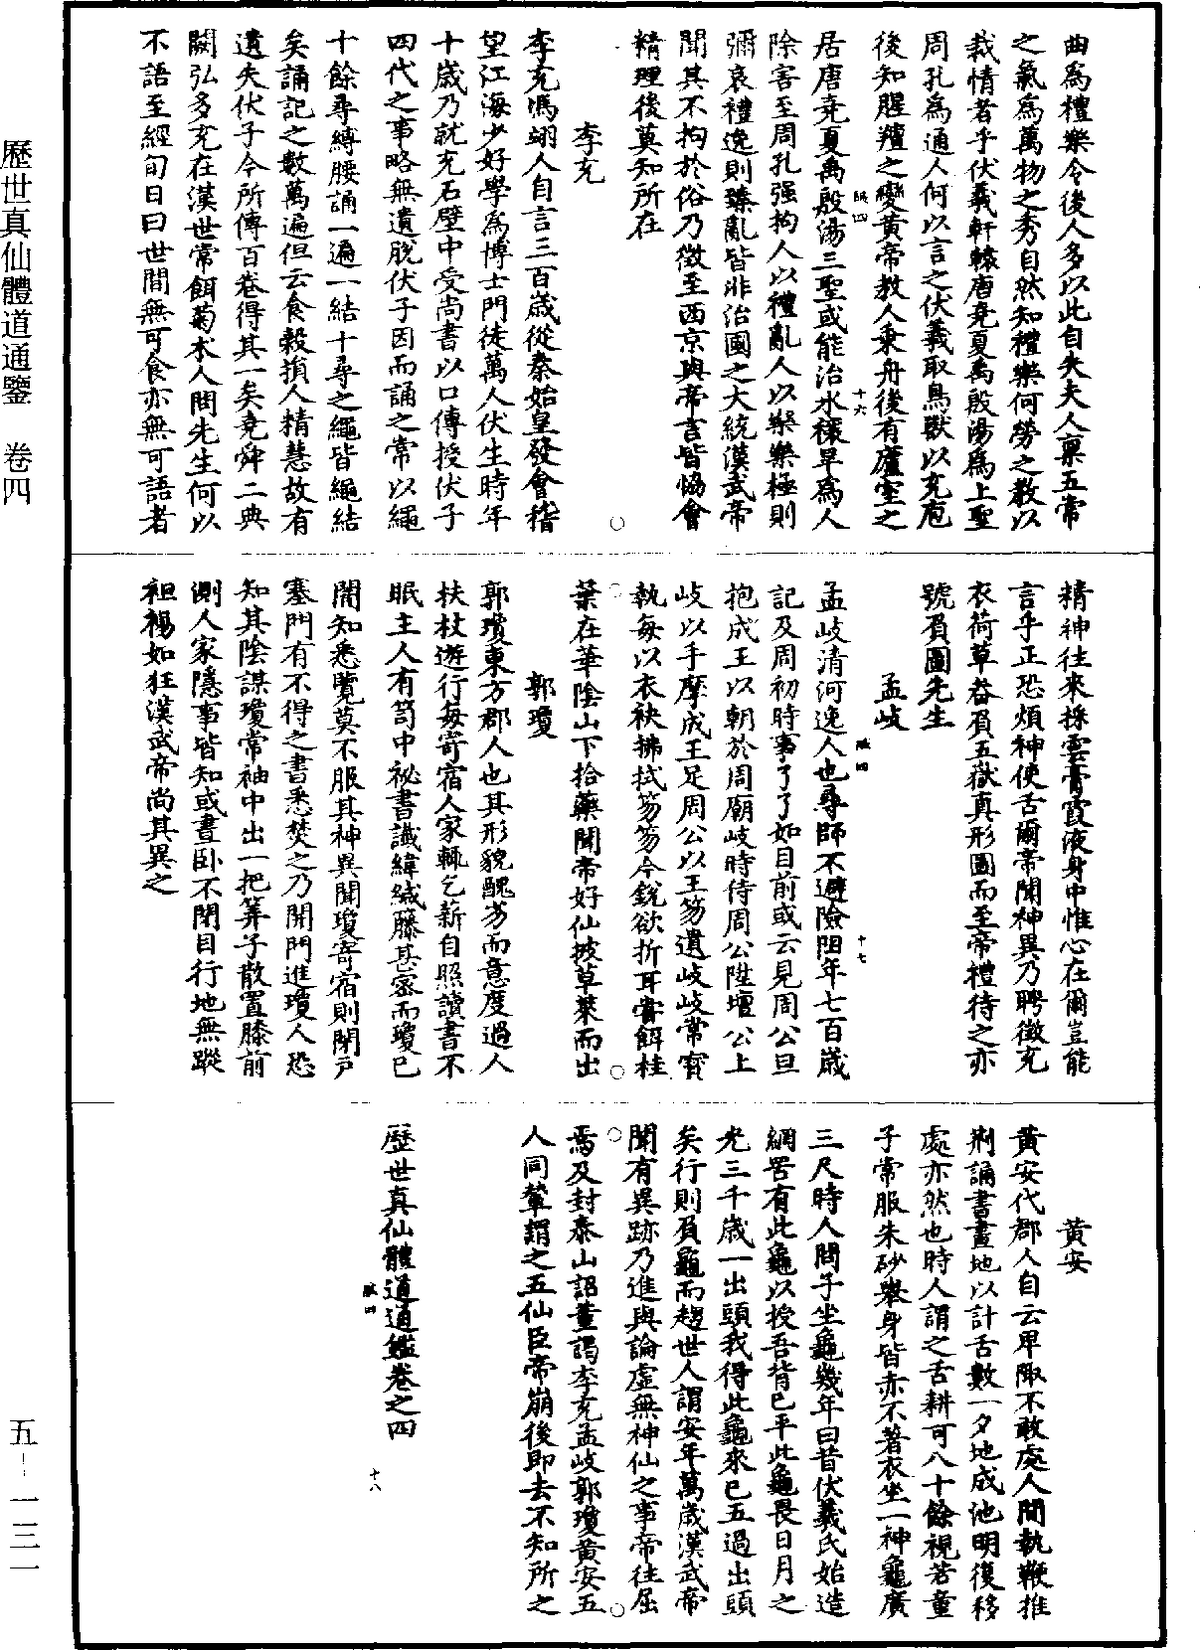 歷世真仙體道通鑒　卷四
曲為禮樂令後人多以此自失夫人稟五常
之氣為萬物之秀自然知禮樂何勞之教以
裁情者乎伏羲軒轅唐堯夏禹殷湯為上聖
周孔為通人何以言之伏羲取鳥獸以充庖
後知腥羶之變黃帝教人乘舟後有廬室之
鹹四　十六
居唐堯夏禹殷湯三聖或能治水穰旱為人
除害至周孔强拘人以禮亂人以樂樂極則
彌哀禮逸則臻亂皆非治國之大統漢武帝
聞其不拘於俗乃徵至西京與帝言皆恊會
精理後莫知所在
李充
李充馮翊人自言三百歲從秦始皇發會稽
望江海少好學為博士門徒萬人伏生時年
十歲乃就充石壁中受尚書以口傳授伏子
四代之事略無遺脫伏子因而誦之常以繩
十餘尋縛腰誦一遍一結十尋之繩皆繩結
矣誦記之數萬遍但云食穀損人精慧故有
遺失伏子今所傳百卷得其一矣堯舜二典
闕弘多充在漢世常餌菊朮人問先生何以
不語至經旬日曰世間無可食亦無可語者
精神往來採雲膏霞液身中惟心在爾豈能
言乎正恐煩神使舌爾帝聞神異乃聘徵充
衣荷草畚負五嶽真形圖而至帝禮待之亦
號負圖先生
孟岐
鹹四　十七
孟岐清河逸人也尋師不避險阻年七百歲
記及周初時事了了如目前或云見周公旦
抱成王以朝於周廟岐時侍周公陞壇公上
岐以手摩成王足周公以玉笏遺岐岐常寶
執每以衣袂拂拭笏笏今銳欲折耳嘗餌桂
葉在華陰山下拾藥聞帝好仙披草萊而出
郭瓊
郭瓊東方郡人也其形貌醜劣而意度過人
扶杖遊行每寄宿人家輒乞薪自照讀書不
眠主人有笥中祕書讖緯緘縢甚密而瓊已
闇知悉覽莫不服其神異聞瓊寄宿則閉戶
塞門有不得之書悉焚之乃開門進瓊人恐
知其陰謀瓊常袖中出一把筭子散置膝前
測人家隱事皆知或晝卧不閉目行地無蹤
袒裼如狂漢武帝尚其異之
黃安
黃安代郡人自云卑陬不敢處人間執鞭推
荆誦書畫地以計舌數一夕地成池明復移
處亦然也時人謂之舌耕可八十餘視若童
子常服朱砂舉身皆赤不著衣坐一神龜廣
三尺時人問子坐龜幾年曰昔伏羲氏始造
網罟有此龜以授吾背已平此龜畏日月之
光三千歲一出頭我得此龜來已五過出頭
矣行則負龜而趨世人謂安年萬歲漢武帝
聞有異跡乃進與論虛無神仙之事帝往屈
焉及封泰山詔董謁李充孟岐郭瓊黃安五
人同輦謂之五仙臣帝崩後即去不知所之
歷世真仙體道通鑑卷之四
鹹四　十八
五—一三一